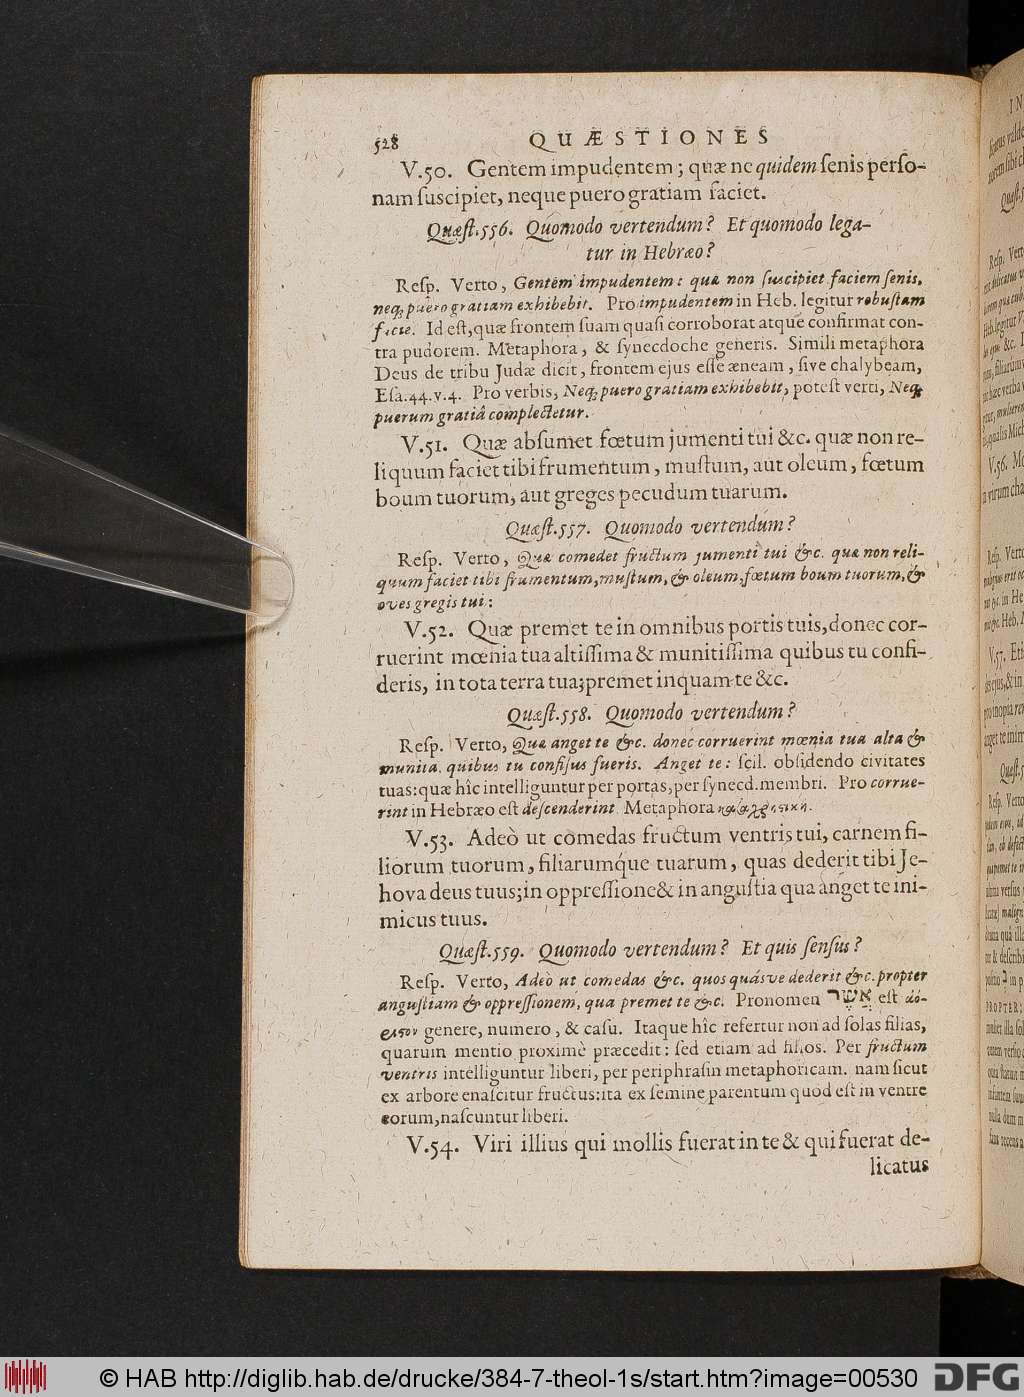 528 QUÆSTIONES
V.50. Gentem impudentem; quæ ne quidem ſenis perſo-
nam ſuscipiet, neque puero gratiam faciet.
Quæſt.556. Quomodo vertendum? Et quomodo lega-
tur in Hebræo?
Reſp. Verto, Gentem impudentem: quæ non ſuscipiet faciem ſenis,
neq; puero gratiam exhibebit. Pro impudentem in Heb. legitur robuſtam
facie. Id eſt, quæ frontem ſuam quaſi corroborat atque confirmat con-
tra pudorem. Metaphora, & ſynecdoche generis. Simili metaphora
Deus de tribu Judæ dicit, frontem ejus eſſe æneam, ſive chalybeam,
Eſa.44.v.4. Pro verbis, Neq; puero gratiam exhibebit, poteſt verti, Neq;
puerum gratiâ complectetur.
V.51. Quæ abſumet fœtum jumenti tui &c. quæ non re-
liquum faciet tibi frumentum, muſtum, aut oleum, fœtum
boum tuorum, aut greges pecudum tuarum.
Quæſt.557. Quomodo vertendum?
Reſp. Verto, Quæ comedet fructum jumenti tui &c. quæ non reli-
quum faciet tibi frumentum, muſtum, & oleum, fœtum boum tuorum, &
oves gregis tui:
V.52. Quæ premet te in omnibus portis tuis, donec cor-
ruerint mœnia tua altiſſima & munitiſſima quibus tu confi-
deris, in tota terra tua; premet inquam te &c.
Quæſt.558. Quomodo vertendum?
Reſp. Verto, Quæ anget te &c. donec corruerint mœnia tua alta &
munita, quibus tu confiſus fueris. Anget te: ſcil. obſidendo civitates
tuas: quæ hîc intelliguntur per portas, per ſynecd. membri. Pro corrue-
rint in Hebræo eſt deſcenderint. Metaphora καταχρηστική.
V.53. Adeò ut comedas fructum ventris tui, carnem fi-
liorum tuorum, filiarumque tuarum, quas dederit tibi Je-
hova deus tuus; in oppreſſione & in anguſtia qua anget te ini-
micus tuus.
Quæſt.559. Quomodo vertendum? Et quis ſenſus?
Reſp. Verto, Adeò ut comedas &c. quos quásve dederit &c. propter
anguſtiam & oppreſſionem, qua premet te &c. Pronomen אֲשֶׁר eſt ἀό-
ριστον genere, numero, & caſu. Itaque hîc refertur non ad ſolas filias,
quarum mentio proximè præcedit: ſed etiam ad filios. Per fructum
ventris intelliguntur liberi, per periphraſin metaphoricam. nam ſicut
ex arbore enaſcitur fructus: ita ex ſemine parentum quod eſt in ventre
eorum, naſcuntur liberi.
V.54. Viri illius qui mollis fuerat in te & qui fuerat de-
licatus
© HAB http://diglib.hab.de/drucke/384-7-theol-1s/start.htm?image=00530
DFG